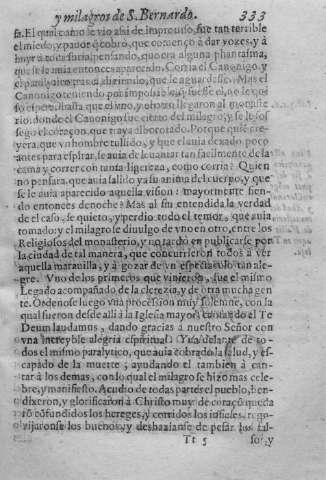 y milagros de S. Bernardo. 333
sa. El qual como le vio assi de improuiso, fue tan terrible
el miedo, y pauor q̃ cobro, que començo à dar vozes, y à
huyr à toda furia, pensando, que era alguna phantasma,
que se le auia entonces aparecido. Corria el Canonigo, y
el
Canonigo teniendo por imposible q̃ fuesse el, no le quiso
rio, donde el Canonigo fue cierto del milagro, y se le sos-
sego el coraçon, que traya alborotado. Porque quiẽ cre-
yera, que vn hombre tullido, y que el auia dexado poco
antes para espirar, se auia de leuantar tan facilmente de la
cama y correr con tanta ligereza, como corria? Quien
no pensara, que auia salido ya su anima del cuerpo, y que
se le auia aparecido aquella vision? mayormente sien-
do entonces de noche? Mas al fin entendida la verdad
de el caso, se quieto, y perdio todo el temor, que auia
tomado: y el milagro se diuulgo de vno en otro, entre los
Religiosos del monasterio, y no tardò en publicarse por
la ciudad de tal manera, que concurrieron todos à ver
aquella marauilla, y à gozar de vn espectaculo tan ale-
gre. Vno de los primeros que vinieron, fue el mismo
Legado acompañado de la clerezia, y de otra mucha gen
te. Ordenose luego vna procession muy solemne, con la
qual fueron desde alli à la Iglesia mayor cantando el Te
Deum laudamus, dando gracias à nuestro Señor con
vna increyble alegria espiritual: Yua delante de to-
dos el mismo paralytico, que auia cobrado la salud, y es-
capado de la muerte; ayudando el tambien à can-
tar à los demas, con lo qual el milagro se hizo mas cele-
bre, y manifiesto. Acudio de todas partes el pueblo, ben-
dixeron, y glorificaron à Christo muy de coraçõ: queda
rõ cõfundidos los hereges, y corridos los infieles, rego-
zijaronse los buenos, y deshazianse de pesar los ma-
Tt 5